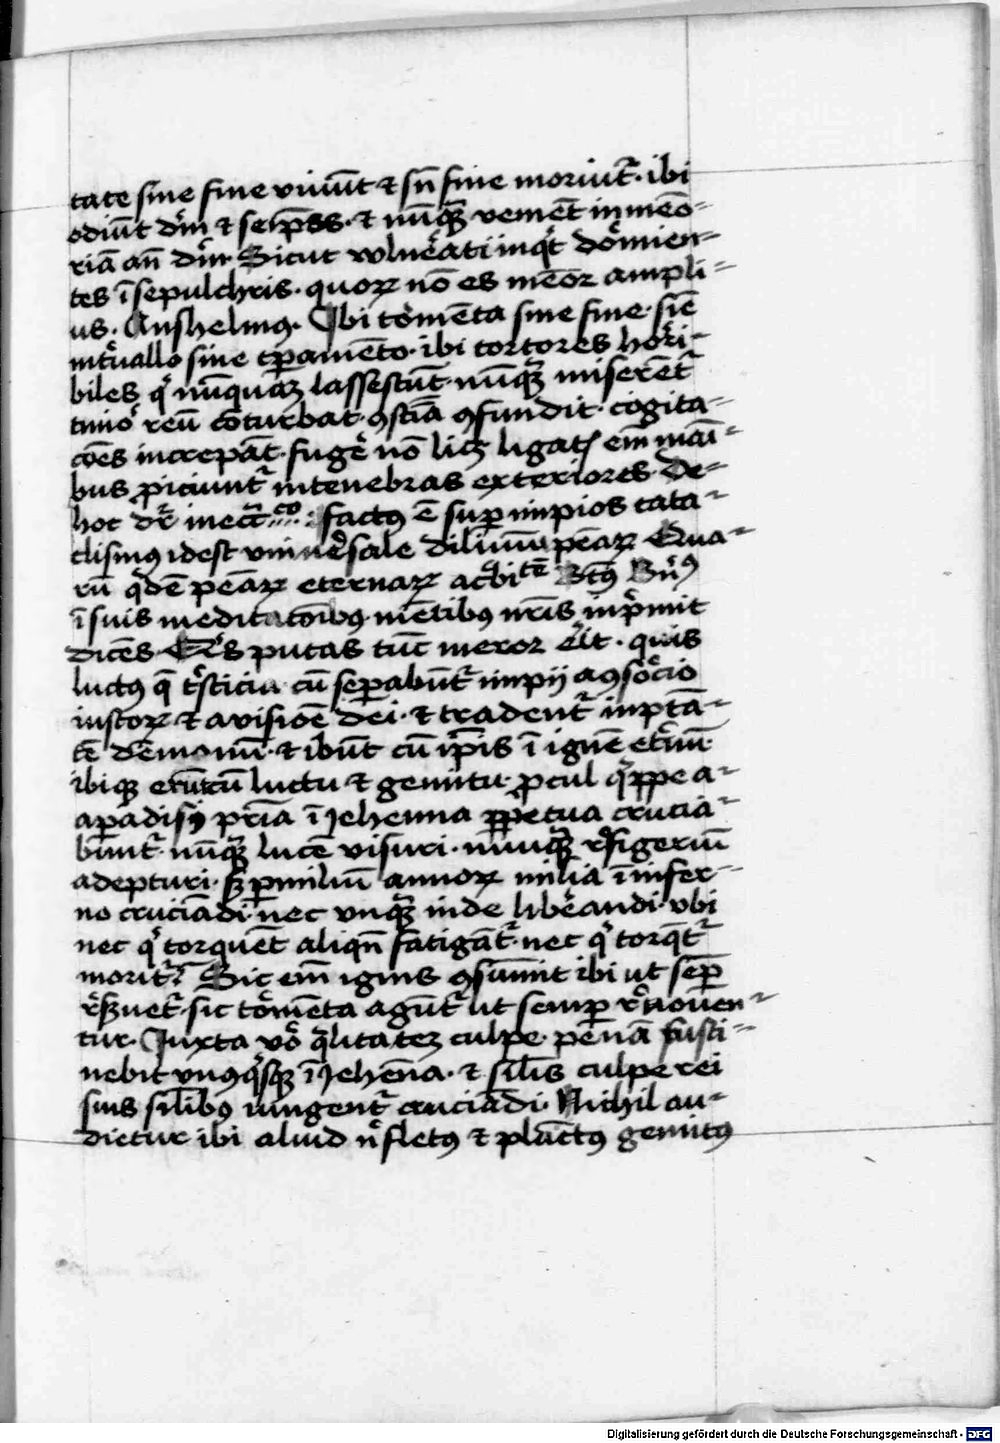 tate sine fine viuūt ⁊ sn̄ fine moriūt᷑. ibi
odiūt dm̄ ⁊ seip̄ss. ⁊ nūq̄ꝫ veniēt in mēo-
riā an̄ dm̄. Sicut vulnēati inq̄t dōrmien-
tes ī sepulchris. quoꝝ nō es mēor ampli-
us. Anshelmꝰ. Ibi tormēta sine fine. sine
int᷑uallo sine tꝑamēto. ibi tortores horri-
biles q̄ nūquaꝫ lassescūt. nūq̄ꝫ miserēt᷑
timor reū cōturbat. ꝯsciā ꝯfundit. cogita-
cōes increpāt. fugē nō licꝫ ligat᷑ em̄ mani-
bus ꝓiciunt᷑ in tenebras exteriores. De
hoc dr̄ in ecc̄co. factꝰ ē suꝑ impios cata-
clismꝰ idest vniuersale diluuiū penaꝝ Qua-
rū q̄dē penaꝝ eternaꝝ acerbitatē Btꝰ Bn̄ꝰ
ī suis meditacōibꝰ mētibꝰ nr̄is inp̄mit
dicēs Q̄s putas tūc meror erit. quis
luctꝰ q̄ t᷑sticia cū seꝑabūt᷑ impij a ꝯsorcio
iustoꝝ ⁊ a visiōe dei. ⁊ tradent᷑ in ptā-
tē demonū. ⁊ ibūt cū ip̄is ī ignē et᷑nū
ibiqꝫ erūt cū luctu ⁊ gemitu. ꝓcul q̄ppe a
a paradisi pr̄ia ī Jehenna ꝑpetua crucia-
būnt᷑. nūq̄ꝫ lucē visuri. nunq̄ꝫ r̄frigeriū
adepturi. sꝫ ꝑ miliū annoꝝ milia ī infer-
no cruciādi. nec vnq̄ꝫ inde liberandi. vbi
nec q̄ torquēt aliqn̄ fatigāt᷑. nec q̄ torq̄t᷑
morit᷑. Sic em̄ ignis ꝯsum̄it ibi ut semꝑ
r̄seruet᷑. sic tōrmēta agūt᷑ ut semꝑ r̄nouen-
tur. Juxta vō q̄litateꝫ culpe. penā susti-
nebit vnꝰq̄sqꝫ ī Jehēna. ⁊ sil̄is culpe rei
suis sil̄ibꝰ iungent᷑ cruciādi. Nichil au-
dietur ibi aliud n̄ fletꝰ ⁊ planctꝰ gemitꝰ
Digitalisierung gefördert durch die Deutsche Forschungsgemeinschaft - DFG